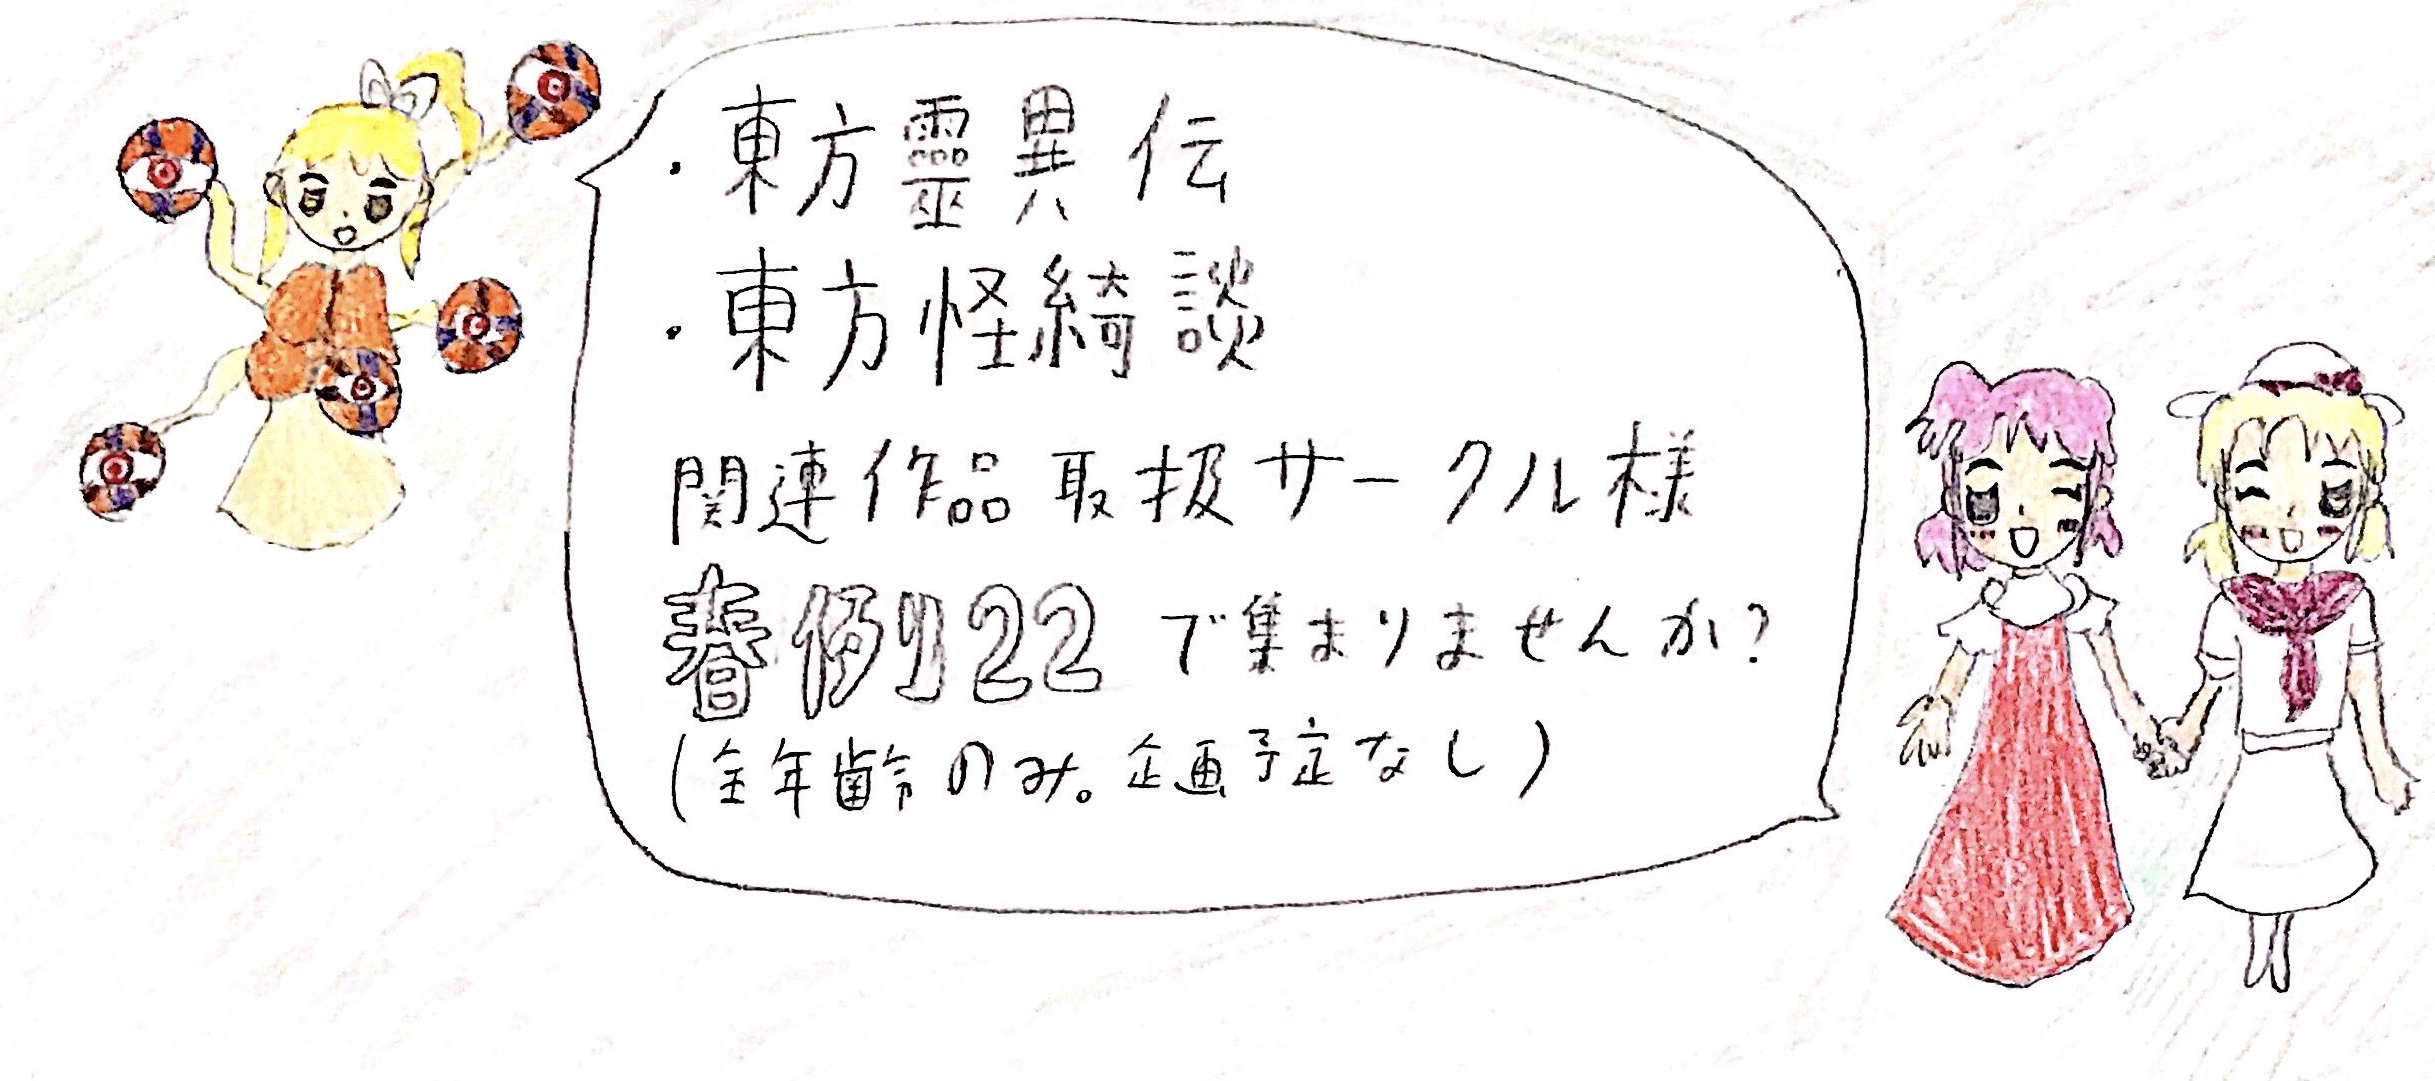 ・東方靈異伝
・東方怪綺談
関連作品取扱サークル様
春例22で集まりませんか?
(全年齢のみ。企画予定なし)